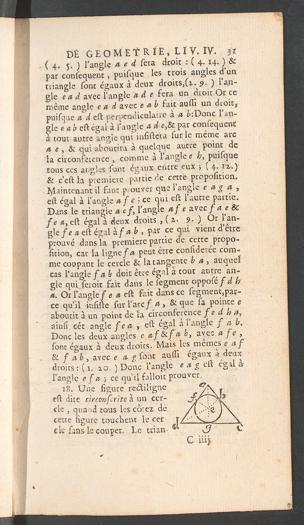 DE GEOMETRIE, LIV. IV. 31
( 4. 5. ) l'angle a e d sera droit : ( 4. 14. ) &
par consequent, puisque les trois angles d'un
triangle sont égaux à deux droits, (2. 9. ) l'an-
gle e a d avec l'angle a d e fera un droit. Or ce
même angle e a d avec e a b fait aussi un droit,
puisque a d est perpendiculaire à a b: Donc l'an-
gle e a b est égal à l'angle a d e, & par conséquent
à tout autre angle qui insistera sur le même arc
a e, & qui aboutira à quelque autre point de
la circonference, comme à l'angle e h, puisque
tous ces angles sont égaux entre eux ; ( 4. 12.)
& c'est la premiere partie de cette proposition.
Maintenant il faut prouver que l'angle e a g a,
est égal à l'angle a f e ; ce qui est l'autre partie.
Dans le triangle a e f, l'angle a f e avec f a e &
f e a, est égal à deux droits, (2. 9. ) Or l'an-
gle f e a est égal à f a b, par ce qui vient d'être
prouvé dans la premiere partie de cette propo-
sition, car la ligne f a peut être considerée com-
me coupant le cercle & la tangente b a, auquel
cas l'angle f a b doit être égal à tout autre an-
gle qui seroit fait dans le segment opposé f d h
a. Or l'angle f e a est fait dans ce segment, par-
ce qu'il insiste sur l'arc f a, & que sa pointe e
aboutit à un point de la circonference f e d h a,
ainsi cét angle f e a, est égal à l'angle f a b.
Donc les deux angles e a f & f a b, avec a f e,
sont égaux à deux droits. Mais les mêmes e a f
& f a b, avec e a g sont aussi égaux à deux
droits : (1. 20. ) Donc l'angle e a g est égal à
l'angle e f a ; ce qu'il falloit prouver.
18. Une figure rectiligne
est dite circonscrite à un cer-
cle, quand tous les côtez de
cette figure touchent le cer
cle sans le couper. Le trian-
a
f b
e
d g c
C iiij